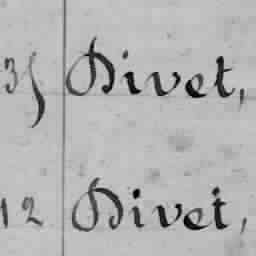 35 Divet,
12 Divet,